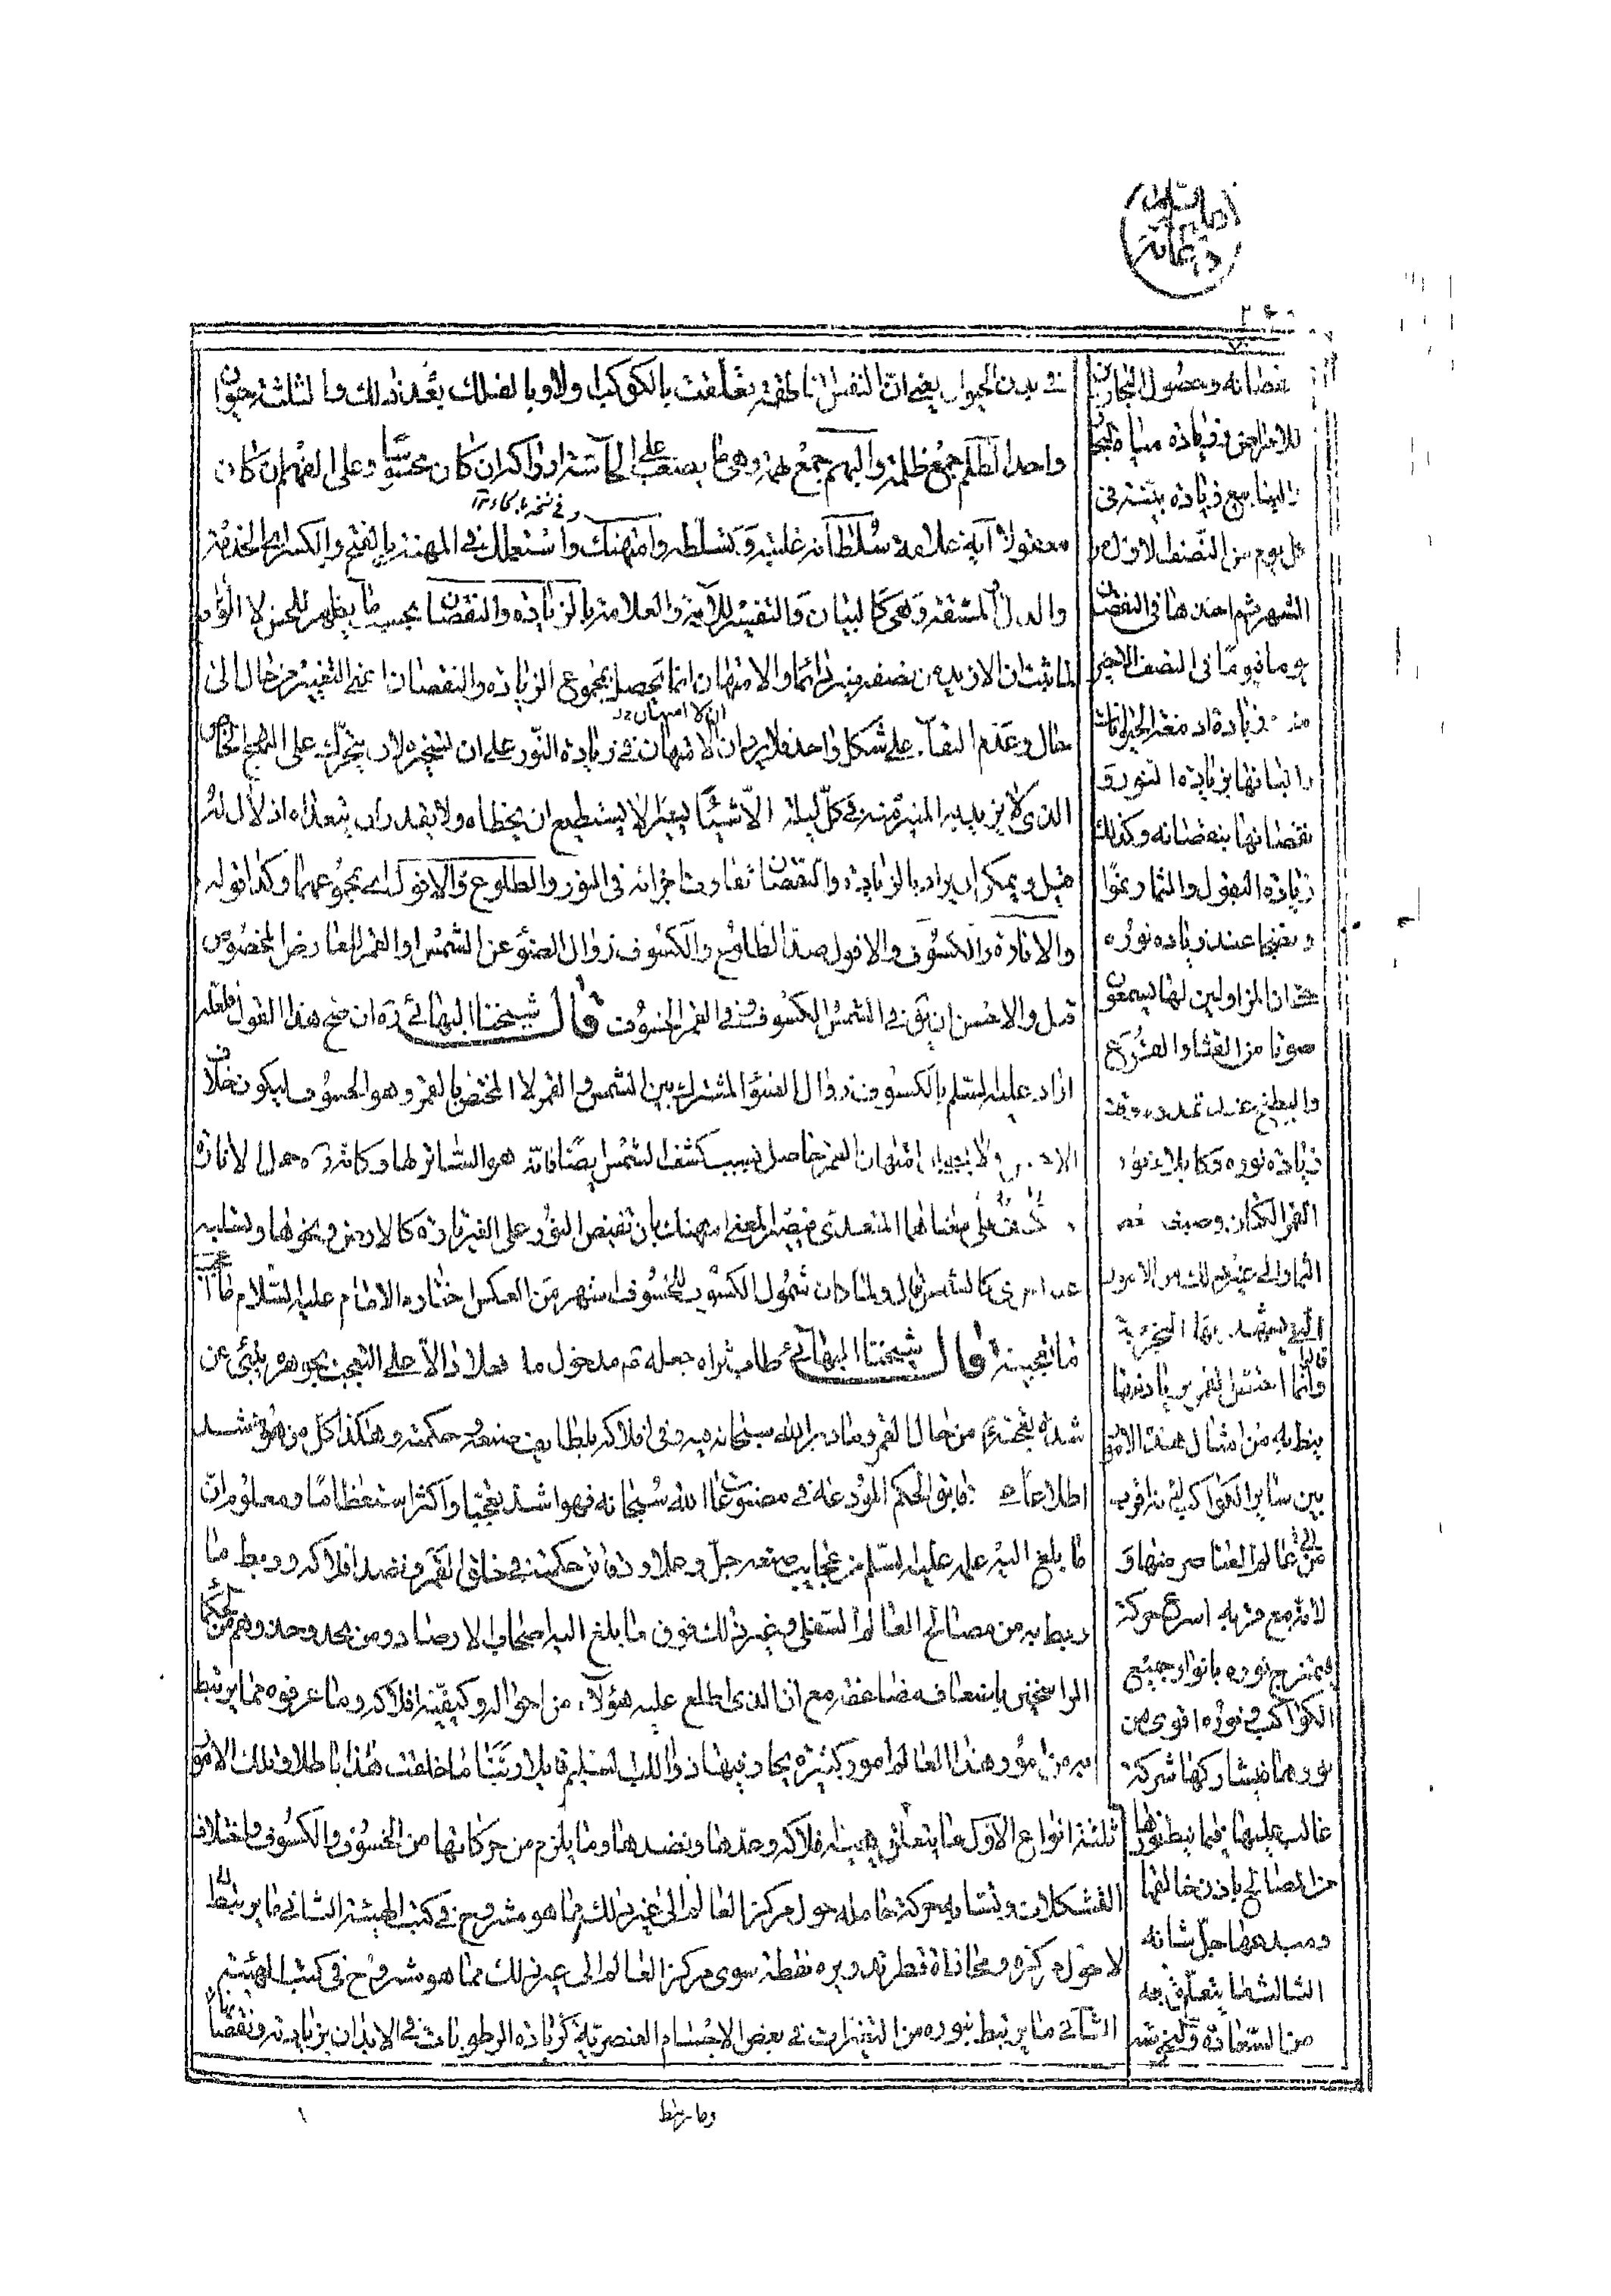 في بدن الحيوان يعني ان النفس الناطقة تعلقت بالكوكب اولا وبالفلك بعد ذلك والثلثة حيوان
واحد الظلم جمع ظلمة والبهم جمع بهمة وهي ما يصعب على الحاسة ادراكه ان كان محسوسا وعلى الفهم ان كان
معقولا آية علامة سلطانه غلبته وتسلطه وامتهنك واستعملك في المهنة بالفتح والكسر اي الخدمة
والذل والمشقة وهي كالبيان والتفسير للآية والعلامة بالزيادة والنقصان بحسب ما يظهر للحس لا الواقع
لما ثبت ان الازيد من نصفه منير دائما والامتهان انما تحصل بمجموع الزيادة والنقصان اعني التغيير من حال الى
حال وعدم البقاء على شكل واحد فلا يرد ان لا امتهان في زيادة النور على ان تسخيره لان يتحرك على النهج الخاص
الذي لا يزيد به المنير منه في كل ليلة الا شيئا يسيرا لا يستطيع ان يتخطاه ولا يقدر ان يتعداه اذلال له
قيل ويمكن ان يراد بالزيادة والنقصان تفاوت اجزائه في النور والطلوع والافول اي بمجموعهما وكذا قوله
والانارة والكسوف والافول ضد الطلوع والكسوف زوال الضوء عن الشمس او القمر للعارض المخصوص
قيل والاحسن ان يقال في الشمس الكسوف وفي القمر الخسوف قال شيخنا البهائي ره ان صح هذا القول فلعله
اراد عليه السلم بالكسوف زوال الضوء المشترك بين الشمس والقمر لا المختص بالقمر وهو الخسوف ليكون خلاف
الاحسن ولا يجب ان امتهان القمر حاصل بسبب كسف الشمس ايضا فانه هو الساتر لها وكانه ره حمل الانارة
على معناهما المتعدي فيصير المعنى امتهنك بان تفيض النور على الغير تارة كالارض ونحوها وتسلبه
عن اخرى كالشمس قال ولما كان شمول الكسوف للخسوف اشهر من العكس اختاره الامام عليه السلام ما اعجب
ما تعجبية قال شيخنا البهائي طاب ثراه جعله ع مدخول ما فعلا دالا على التعجب بجوهره ينبئ عن
شدة تعجبه ع من حال القمر وما دبر الله سبحانه فيه وفي افلاكه بلطايف صنعه وحكمته وهكذا كل من هو اشد
اطلاعا على دقايق الحكم المودعة في مصنوعات الله سبحانه فهو اشد تعجبا واكثر استعظاما ومعلوم ان
ما بلغ اليه علمه عليه السلم من عجايب صنعه جل وعلا ودقائق حكمته في خلق القمر ونضد افلاكه وربط ما
ربط به من مصالح العالم السفلي وغير ذلك فوق ما بلغ اليه اصحاب الارصاد ومن يحذو حذوهم من الحكماء
الراسخين باضعاف مضاعفة مع ان الذي اطلع عليه هؤلاء من احواله وكيفية افلاكه وما عرفوه مما يرتبط
به من امور هذا العالم امور كثيرة يحار فيها ذو اللب السليم قايلا ربنا ما خلقت هذا باطلا وتلك الامور
ثلثة انواع الاول ما يتعلق بهيئة افلاكه وعدها ونضدها وما يلزم من حركاتها من الخسوف والكسوف واختلاف
التشكلات وتشابه حركة حامله حول مركز العالم الى غير ذلك مما هو مشروح في كتب الهيئة الثاني ما يرتبط
لا حول مركزه ومحاذاة قطر تدويره نقطة سوى مركز العالم الى غير ذلك مما هو مشروح في كتب الهيئة
الثاني ما يرتبط بنوره من التغيرات في بعض الاجسام العنصرية كزيادة الرطوبات في الابدان بزيادته ونقصانها
بنقصانه وحصول البحارين
للامراض في زيادة مياه البحار
والينابيع زيادة بينة في
كل يوم من النصف الاول من
الشهر ثم اخذها في النقصان
يوما فيوما في النصف الاخير
منه وزيادة ادمغة الحيوانات
والبانها بزيادة النور و
نقصانها بنقصانه وكذلك
زيادة البقول والثمار نموا
ونضجا عند زيادة نوره
حتى ان المزاولين لها يسمعون
صوتا من القثاء والقرع
والبطيخ عند تمدده وقت
زيادة نوره وكابلاء نور
القمر الكتان وصبغه بعض
الثمار الى غير ذلك من الامور
التي تشهد بها التجربة
قالوا
وانما اختص القمر بزيادة ما
نيط به من امثال هذه الامور
بين ساير الكواكب لانه اقرب
من عالم العناصر منها و
لانه مع قربه اسرع حركة
فيمتزج نوره بانوار جميع
الكواكب ونوره اقوى من
نورها فيشاركها شركة
غالب عليها فيما نيط بنورها
من المصالح باذن خالقها
ومبدعها جل شانه
الثالث ما يتعلق به
من السعادة والنحوسة
وما يرتبط